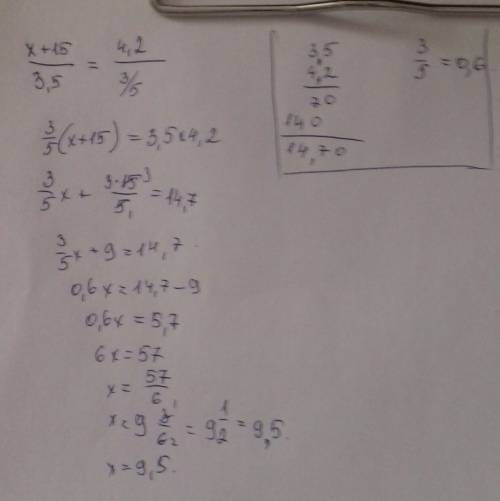 (x+15)/3,5 = 4,2/(3/5)
3/5(x+15) = 3,5×4,2
3/5x + 3·15³/5₁ = 14,7
3/5x + 9 = 14,7
0,6x = 14,7-9
0,6x = 5,7
6x = 57
x = 57/6
x = 9 3¹/6₂ = 9 1/2 = 9,5.
x = 9,5.
3,5
4,2
70
140
14,70
3/5 = 0,6